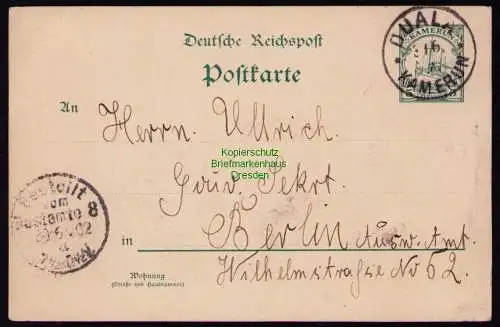 Deutsche Reichspost
KAMERUN
DUALA
KAMERUN
Postkarte
An
Herrn Ullrich.
Kopierschutz
Briefmarkenhaus
Dresden
Gouv. Sekrt.
Bestellt
vom
Postamte 8
in
Berlin Ausw. Amt.
Wilhelmstraße No 62.
Wohnung
(Straße und Hausnummer)